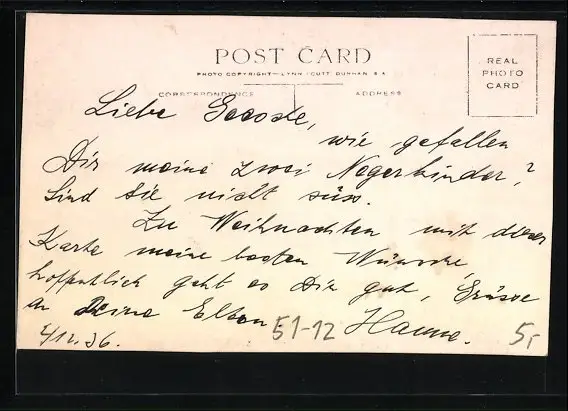 POST CARD
PHOTO COPYRIGHT—LYNN SCOTT DUNHAN S A
REAL
PHOTO
CARD
CORRESPONDENCE
ADDRESS
Liebe
wie gefallen
Dir meine zwei Negerkinder?
Sind sie nicht süss.
Zu Weihnachten mit dieser
Karte meine besten Wünsche
hoffentlich geht es Dir gut, Grüsse
an Deine Eltern Hanne.
51-12
5,-
4/12.36.